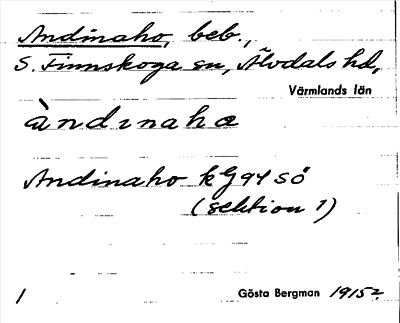 Andinaho, beb.,
S. Finnskoga sn, Älvdals hd,
Värmlands län
àndınahω
Andinaho kG94 SÖ
(sektion 1)
1 Gösta Bergman 1915?